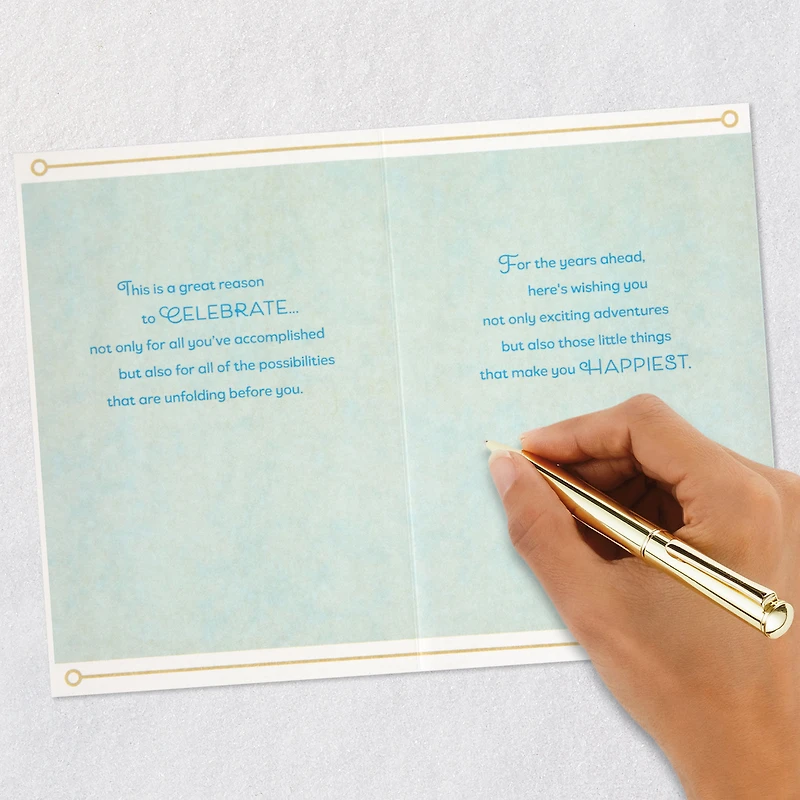 This is a great reason
to CELEBRATE...
not only for all you've accomplished
but also for all of the possibilities
that are unfolding before you.
For the years ahead,
here's wishing you
not only exciting adventures
but also those little things
that make you HAPPIEST.